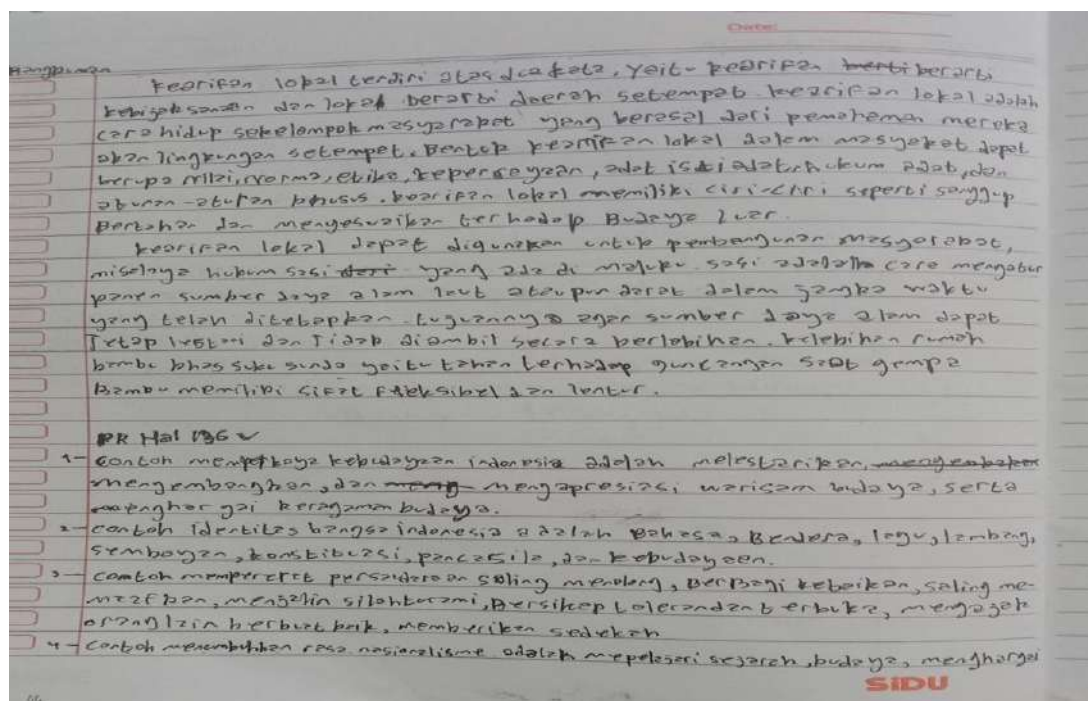 Date:
Rangpuman
kearifan lokal terdiri atas dua kata, yait- kearifan berti berarti
kebijaksanaan dan lokal berarti daerah setempat. kearifan lokal adalah
cara hidup sekelompok masyarakat yang berasal dari pemahaman mereka
akan lingkungan setempat. Bentuk kearifan lokal dalam masyakat dapat
berupa nilai, norma, etika, kepercayaan, adat istiadat, hukum adat, dan
aturan-aturan khusus. kearifan lokal memiliki ciri-ciri seperti sanggup
Bertahan dan menyesuaikan terhadap Budaya luar.
kearifan lokal dapat digunakan untuk pembangunan masyarakat,
misalaya hukum sasi dari yang ada di maluku. sasi adalah cara mengatur
panen sumber daya alam laut ataupun darat dalam jangka waktu
yang telah ditetapkan. tuguannya agar sumber daya alam dapat
Tetap lestari dan Tidak diambil secara berlebihan. kelebihan rumah
bambu khas suku sunda yaitu tahan terhadap guncangan saat gempa
Bambu memiliki sifat fleksibel dan lentur.
PR Hal 136
1- contoh memperkaya kebudayaan indonesia adalah melestarikan, mengembakan
mengembangkan, dan meng mengapresiasi warisam budaya, serta
menghargai keragaman budaya.
2- contoh identitas bangsa indonesia adalah Bahasa, Bendera, lagu, lambang,
semboyan, konstitusi, pancasila, dan kebudayaan.
3- contoh mempererat persaudaraan saling menolong, Berbagi kebaikan, saling me-
maafkan, menjalin silahturami, Bersikap toleran dan berbuka, mengajak
orang lain berbuat baik, memberikan sedekah
4- contoh menumbuhkan rasa nasionalisme adalah mepelajari sejarah, budaya, menghargai
SIDU